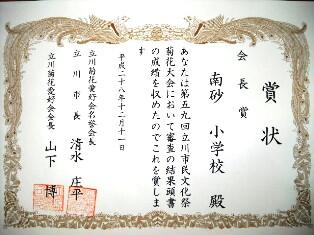 賞状
会長賞
南砂小学校 殿
あなたは第五九回立川市民文化祭
菊花大会において審査の結果頭書
の成績を収めたのでこれを賞しま
す
平成二十八年十二月十一日
立川菊花愛好会名誉会長
立川市長 清水庄平
立川菊花愛好会会長
山下 博